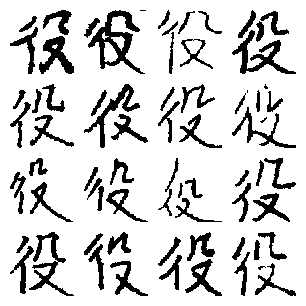 役役役役
役役役役
役役役役
役役役役